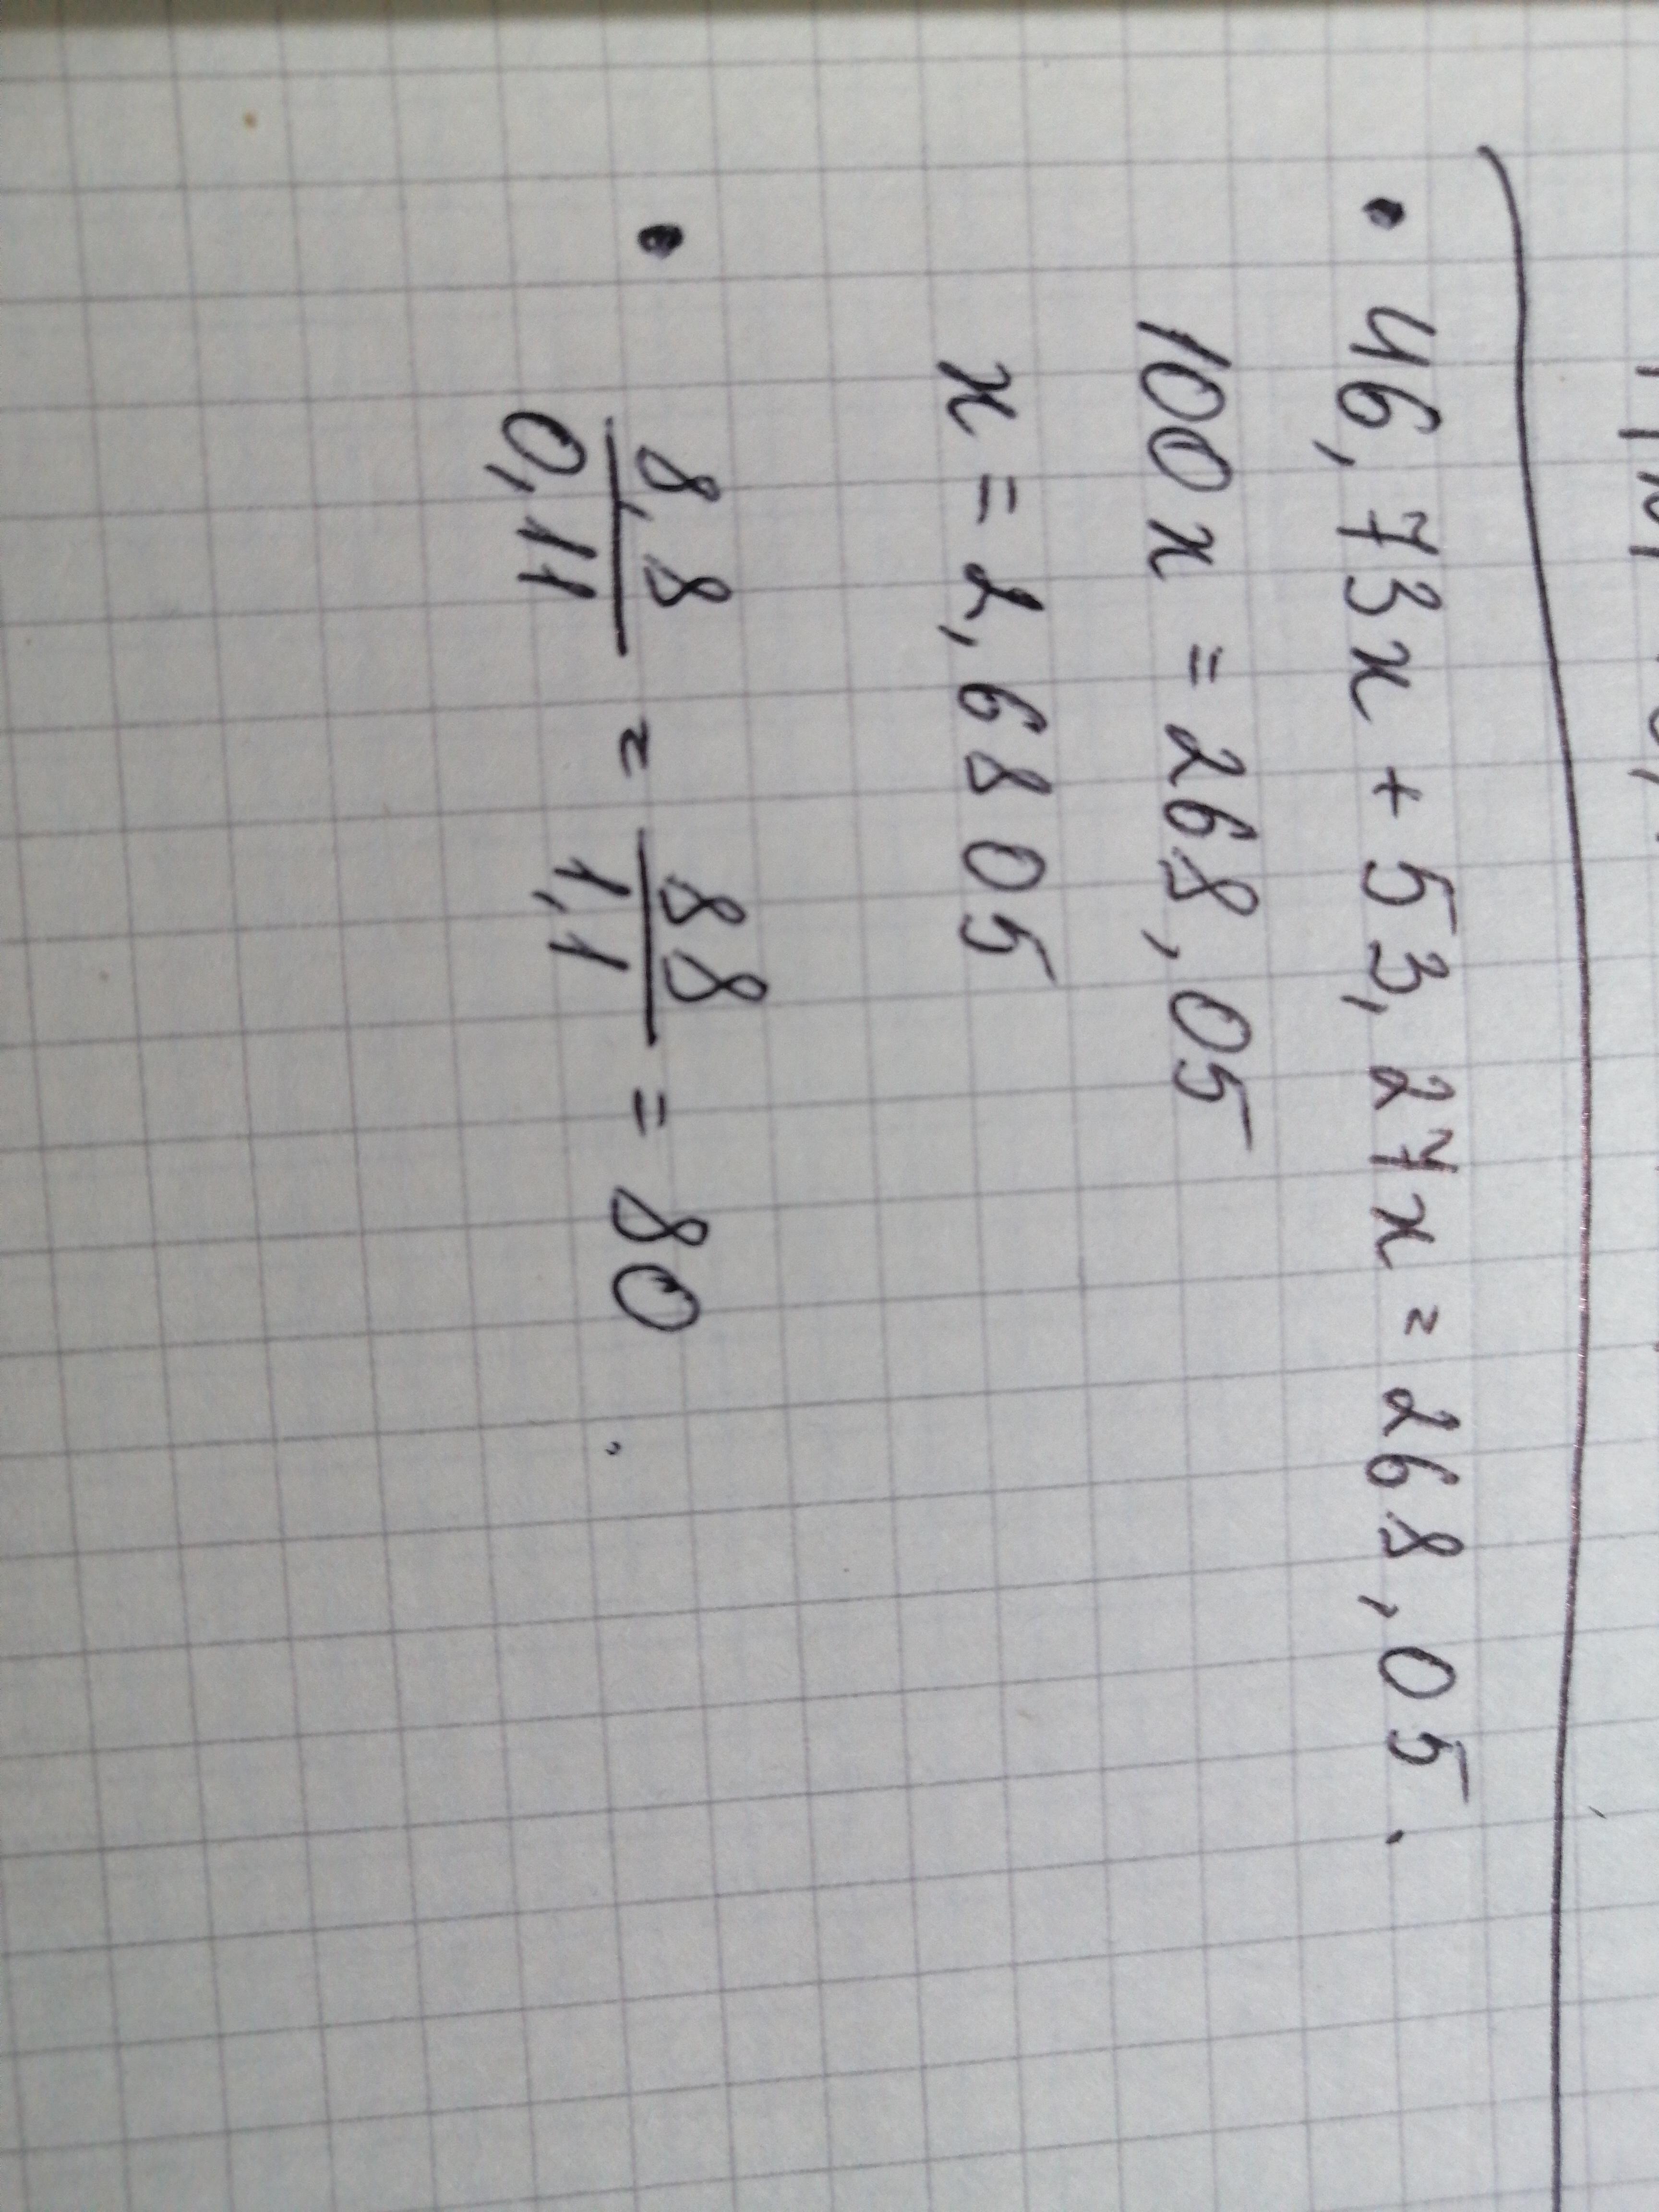 • 46,73x + 53,27x = 268,05.
100x = 268,05
x = 2,6805
• 8,8/0,11 = 88/1,1 = 80